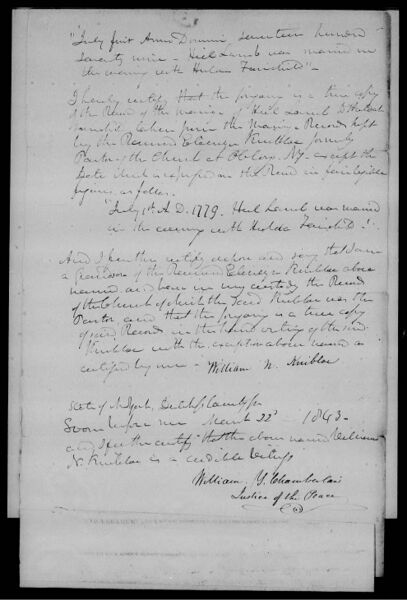 "July first Anno Domini, seventeen hundred
seventy nine - Hiel Lamb was married in
the evening with Huldah Fairchild" -
I hereby certify that the foregoing is a true copy
of the Record of the marriage of Hiel Lamb & Huldah
Fairchild taken from the Marriage Records kept
by the Reverend Ebenezer Knibloe formerly
Pastor of the Church at Oblong, N.Y. except the
date which is in the Record in
figures as follows
"July 1st A.D. 1779. Hiel Lamb was married
in the evening with Hulda Fairch'd".
And I further certify depose and say that I am
a Grandson of the Reverend Ebenezer Knibloe above
named and have in my custody the Record
of the Church of which the said Knibloe was the
Pastor and that the foregoing is a true copy
of said Record in the hand writing of the said
Knibloe with the exception above named as
certified by me - William N. Knibloe
State of N. York, Dutchess County ss
Sworn before me March 22d 1843 -
and I further certify that the above named William
N. Knibloe is a credible witness
William Y. Chamberlain
Justice of the Peace